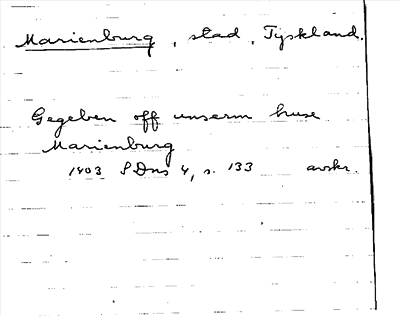 Marienburg, stad, Tyskland.
Gegeben off unserm huse
Marienburg
1403 SDns 4, s. 133 avskr.